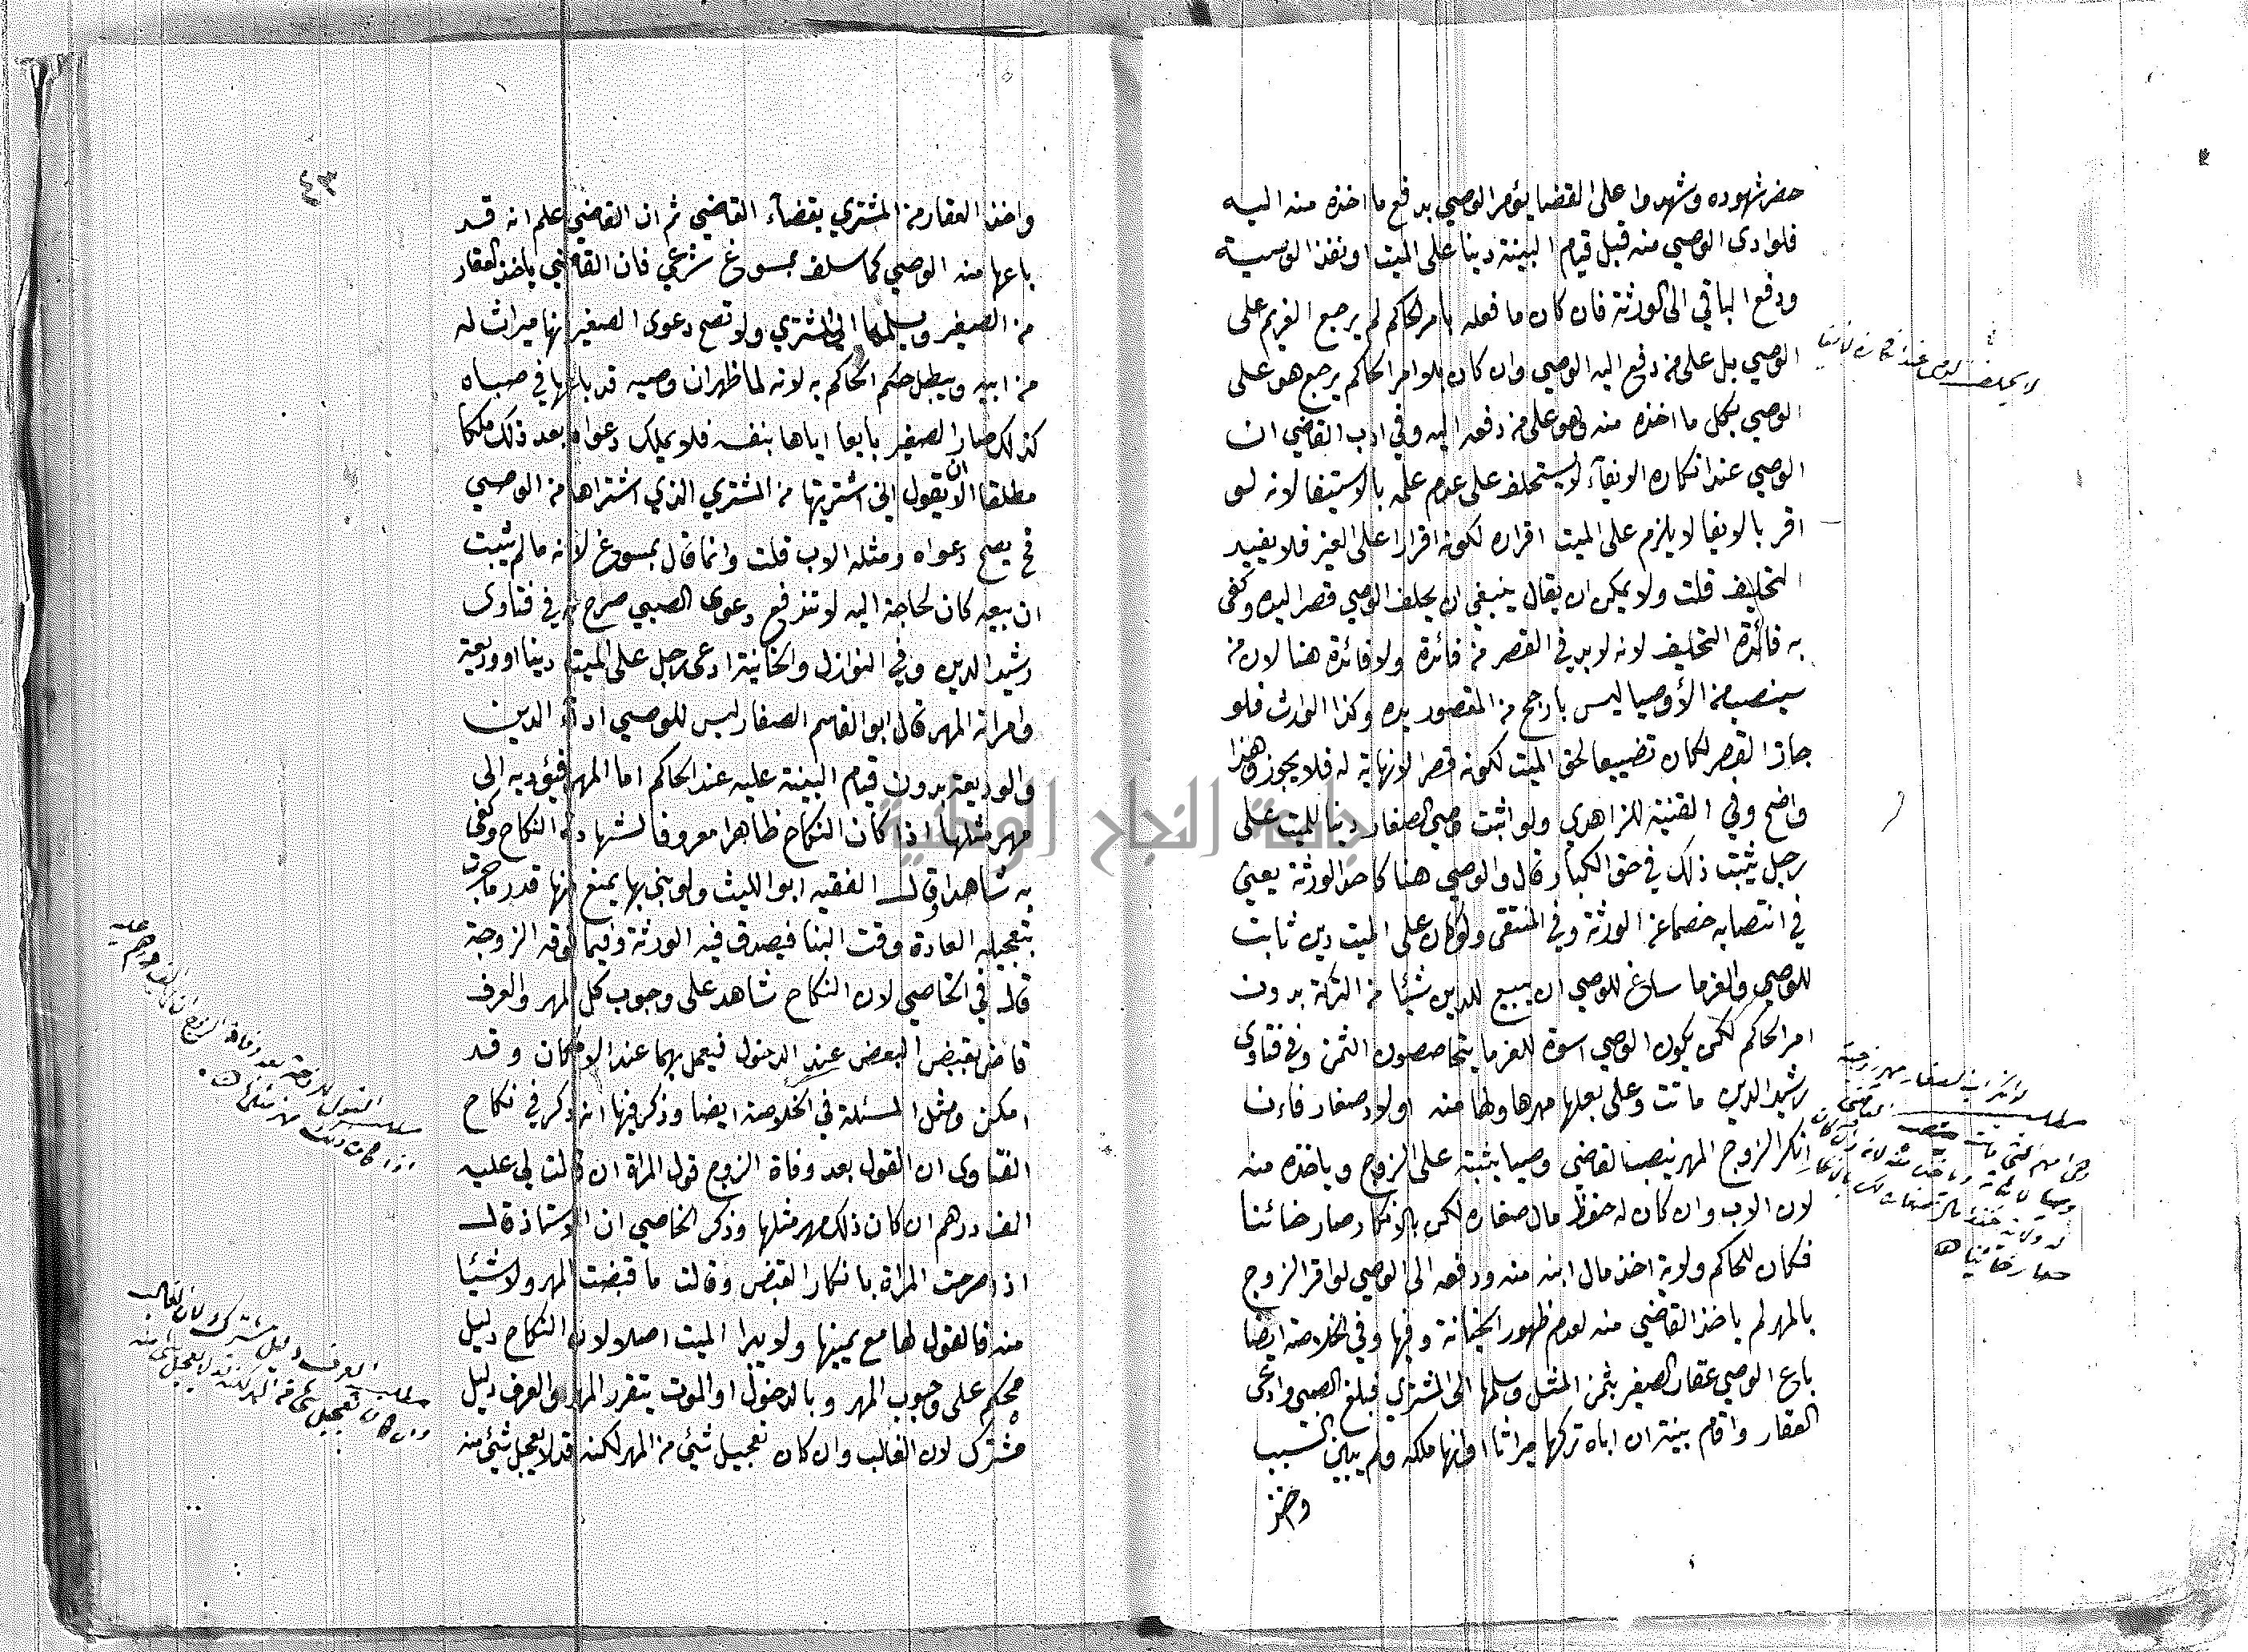 حضر شهوده وشهدوا على القضا يؤمر الوصي بدفع ما اخذه منه اليه
فلوادى الوصي منه قبل قيام البينة دينا على الميت او نفذ الوصية
ودفع الباقي الى الورثة فان كان ما فعله بامر الحاكم لم يرجع الغريم على
الوصي بل على من دفع اليه الوصي وان كان بلا امر الحاكم يرجع هو على
الوصي بكل ما اخذه منه وهو على من دفعه اليه وفي ادب القاضي ان
الوصي عند انكاره الايفاء لا يستحلف على عدم علمه بالاستيفا لانه لو
اقر بالايفا لا يلزم على الميت اقراره لكونه اقرارا على الغير فلا يفيد
التحليف قلت ولا يمكن ان يقال ينبغي ان يحلف الوصي قصر اليده وكفى
به فائدة التحليف لانه لا بد في القصر من فائدة ولا فائدة هنا لان من
سينصب من الأوصيا ليس بارجح من المقصور يده وكذا الوارث فلو
جاز القصر لكان تضييعا لحق الميت لكونه قصرا لا نهاية له فلا يجوز وهذا
واضح وفي القنية للزاهدي ولو اثبت وصي الصغار دينا للميت على
رجل يثبت ذلك في حق الكبار قال والوصي هنا كاحد الورثة يعني
في انتصابه خصما عن الورثة وفي المنتقى ولو كان على الميت دين ثابت
للوصي والغرما ساغ للوصي ان يبيع للدين شيئا من التركة بدون
امر الحاكم لكن يكون الوصي اسوة للغرما يتحاصصون الثمن وفي فتاوى
رشيد الدين ماتت وعلى بعلها مهرها ولها منه اولاد صغار فان
انكر الزوج المهر ينصب القاضي وصيا يثبته على الزوج وياخذه منه
لان الاب وان كان له حفظ مال صغاره لكن بالانكار صار خائنا
فكان للحاكم ولاية اخذ مال ابنه منه ودفعه الى الوصي لو اقر الزوج
بالمهر لم ياخذ القاضي منه لعدم ظهور الخيانة وفيها وفي الخلاصة ايضا
باع الوصي عقار الصغير بثمن المثل وسلمها الى المشتري فبلغ الصبي وادعى
العقار واقام بينة ان اباه تركها ميراثا او انها ملكه ولم يبين السبب
واخذ
لا يحلف الوصي عند انكاره الايفا
٤٣
واخذ العقار من المشتري بقضاء القاضي ثم ان القاضي علم انه قد
باعها منه الوصي كما سلف بمسوغ شرعي فان القاضي ياخذ العقار
من الصغير ويسلمها الى المشتري ولا تصح دعوى الصغير انها ميراث له
من ابيه ويبطل حكم الحاكم به لانه لما ظهر ان وصيه قد باعها في صباه
كذلك صار الصغير بايعا اياها بنفسه فلا يملك دعواه بعد ذلك ملكا
مطلقا الا ان يقول اني اشتريتها من المشتري الذي اشتراها من الوصي
فح يصح دعواه ومثله الاب قلت وانما قال بمسوغ لانه ما لم يثبت
ان بيعه كان لحاجة اليه لا تندفع دعوى الصبي صرح به في فتاوى
رشيد الدين وفي النوازل والخانية ادعى رجل على الميت دينا او وديعة
وامراته المهر قال ابو القاسم الصفار ليس للوصي اداء الدين
والوديعة بدون قيام البينة عليه عند الحاكم اما المهر فيؤديه الى
مهر مثلها اذا كان النكاح ظاهرا معروفا لشهادة النكاح وكفى
به شاهدا وقال الفقيه ابو الليث ولو بنى بها يمنع منها قدر ما جرت
بتعجيله العادة وقت البنا فيصدق فيه الورثة وفيما فوقه الزوجة
قال في الخاصي لان النكاح شاهد على وجوب كل المهر والعرف
قاض بقبض البعض عند الدخول فيعمل بهما عند الامكان وقد
امكن ومثل المسئلة في الخلاصة ايضا وذكر فيها انه ذكر في نكاح
الفتاوى ان القول بعد وفاة الزوج قول المراة ان قالت لي عليه
الف درهم ان كان ذلك مهر مثلها وذكر الخاصي ان الاستاذ قال
اذا صرحت المراة بانكار القبض وقالت ما قبضت المهر ولا شيئا
منه فالقول لها مع يمينها ولا يبرا الميت اصلا لان النكاح دليل
محكم على وجوب المهر وبالدخول او الموت يتقرر المهر والعرف دليل
مشترك لان الغالب وان كان تعجيل شيئ من المهر لكنه قد لا يعجل شيئ منه
جامعة النجاح الوطنية